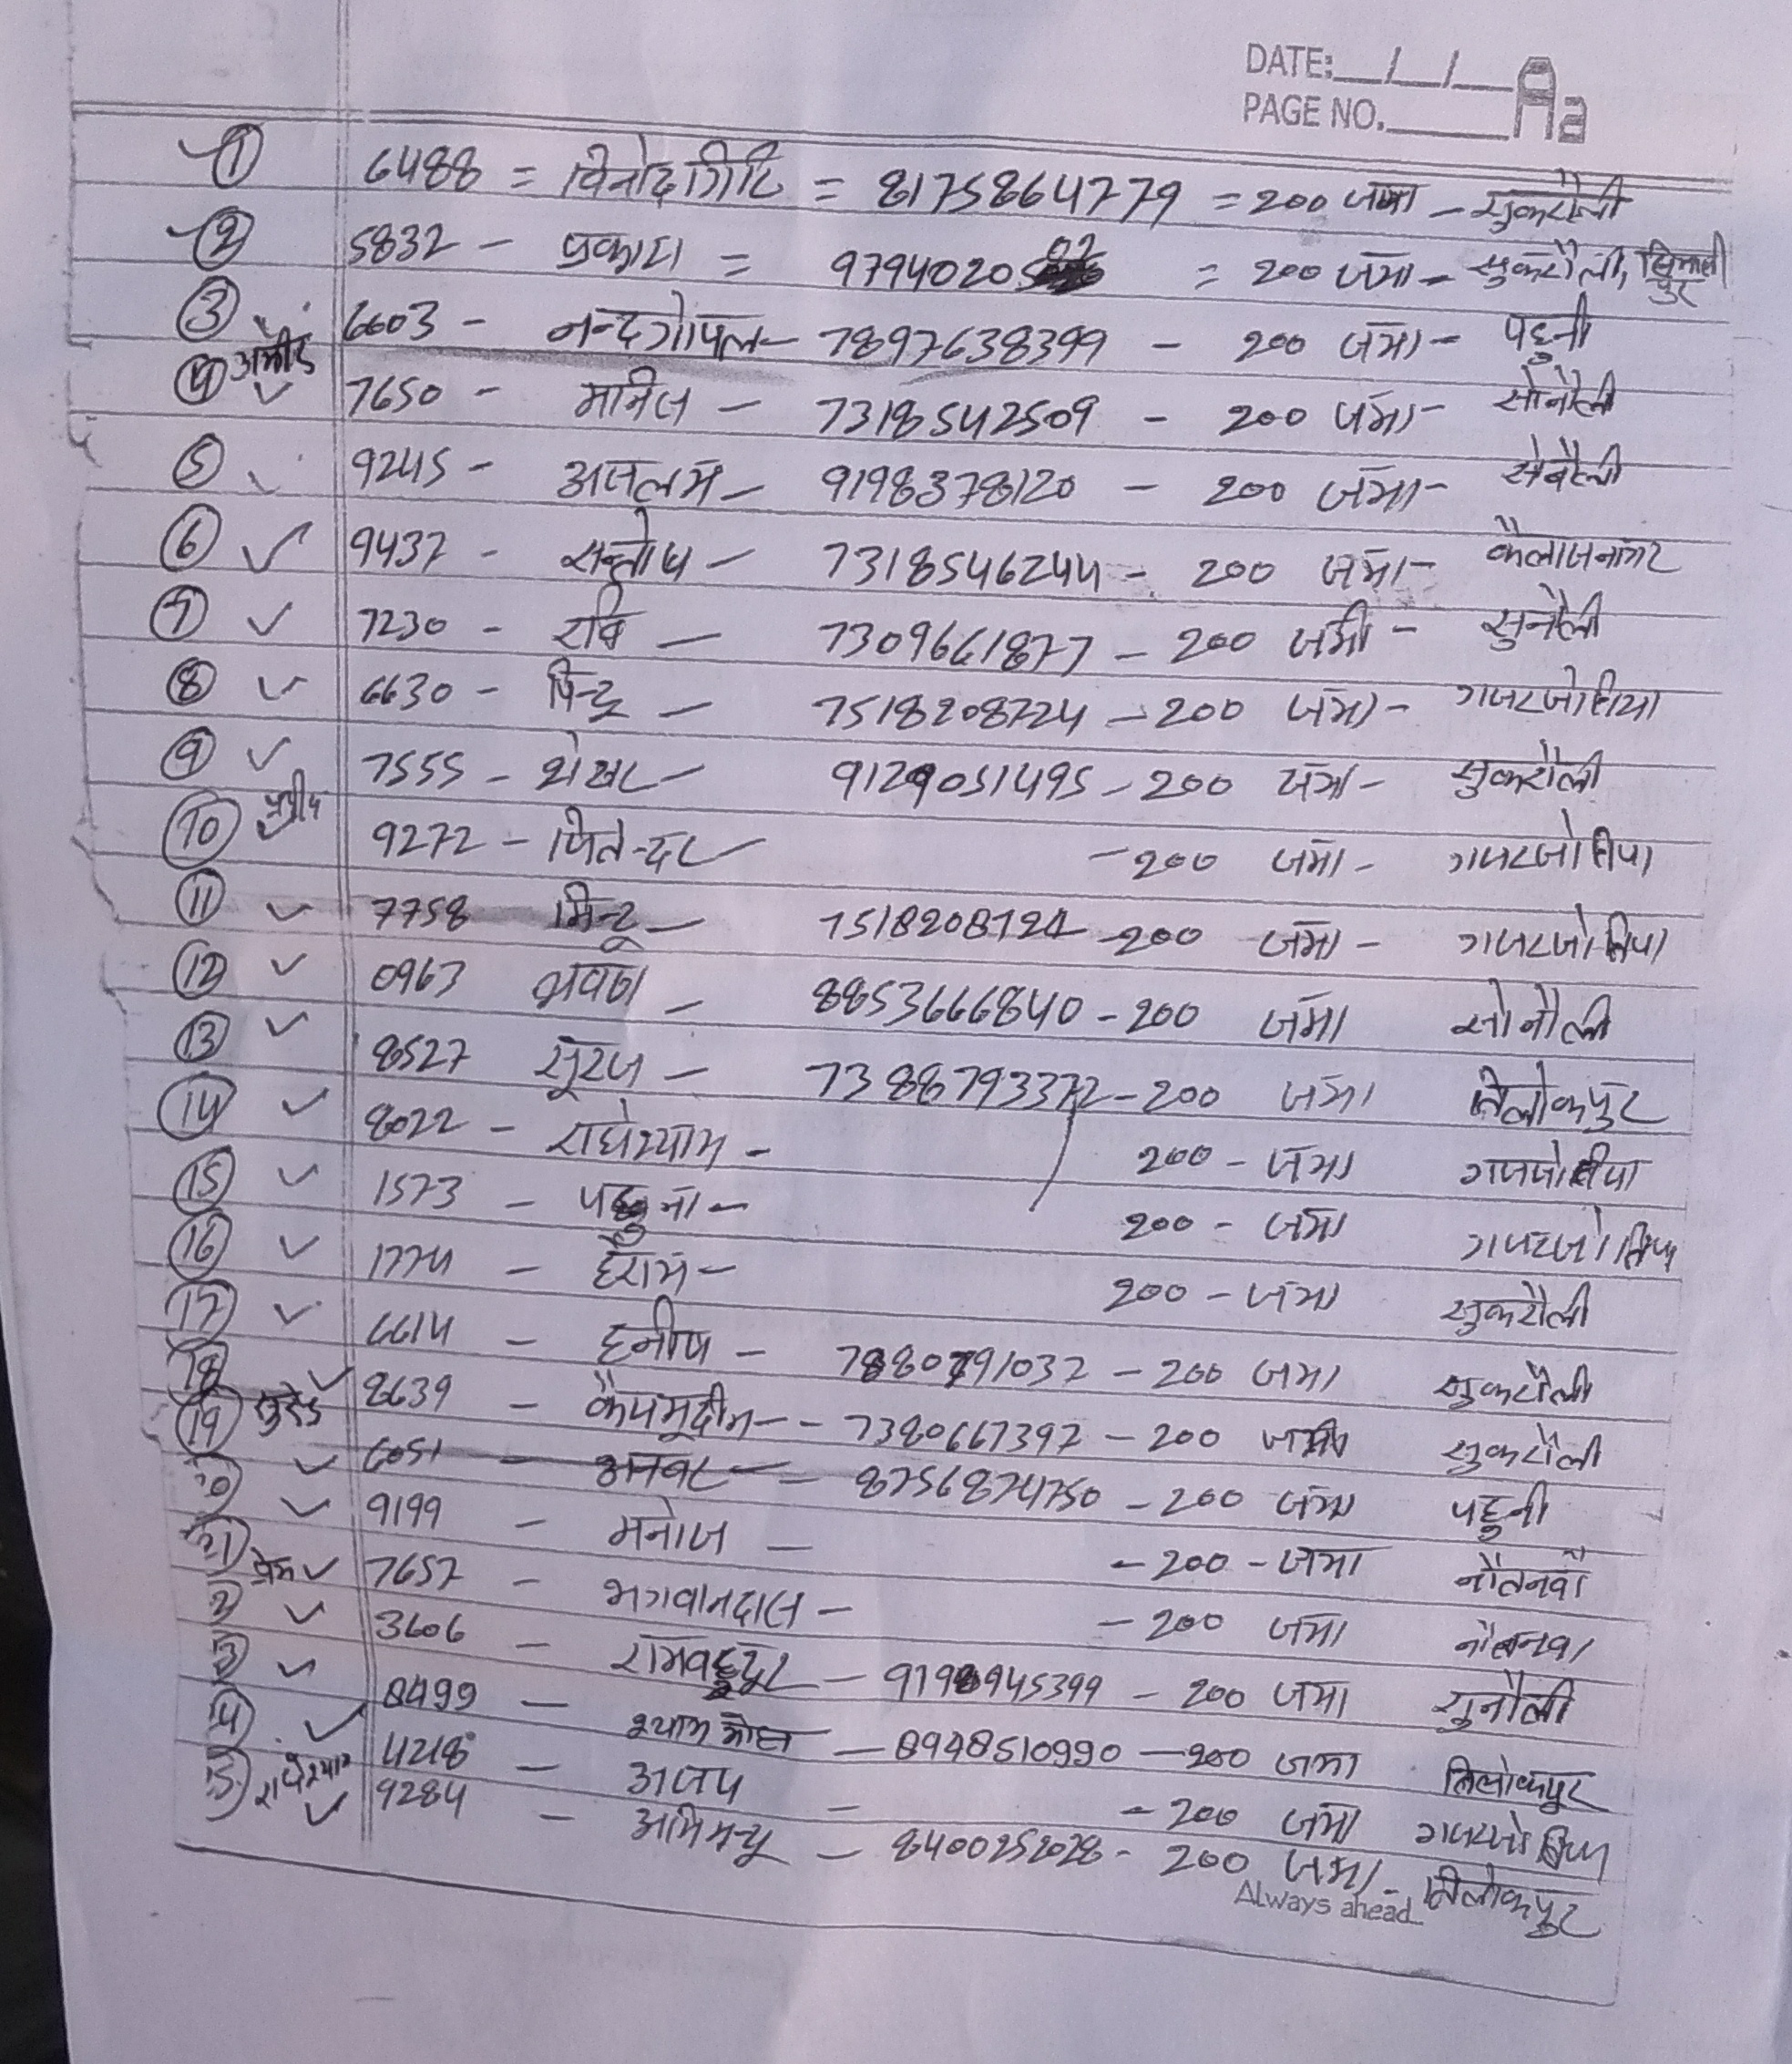 DATE:__/__/__ Aa
PAGE NO.
1 6488 = विनोद गिरि = 8175864779 = 200 जमा - सुकरौली
2 5832 - प्रकाश = 9794020502 = 200 जमा - सुकरौली,
3 6603 - नन्दगोपाल - 7897638399 - 200 जमा - पहुनी
4 7650 - 7318542509 - 200 जमा - सोनौली
5 9245 - 9198378120 - 200 जमा -
6 9437 - सन्तोष - 7318546244 - 200 जमा - कैलाशनगर
7 7230 - रवि - 7309661877 - 200 जमा - सुनौली
8 6630 - पिन्टू - 7518208724 - 200 जमा - गजरजोतिया
9 7555 - शेखर - 9129051495 - 200 जमा - सुकरौली
10 9272 - - 200 जमा - गजरजोतिया
11 7758 मिन्टू - 7518208724 - 200 जमा - गजरजोतिया
12 0963 - 8853666840 - 200 जमा सोनौली
13 8527 सूरज - 7388793372 - 200 जमा त्रिलोकपुर
14 8022 - राधेश्याम - 200 - जमा गजजोतिया
15 1573 - - 200 - जमा गजरजोतिया
16 1774 - - 200 - जमा सुकरौली
17 6614 - - 7880791032 - 200 जमा सुकरौली
18 8639 - - - 7380667392 - 200 जमा सुकरौली
19 6051 - - 8756874750 - 200 जमा पहुनी
20 9199 - मनोज - - 200 - जमा नौतनवाँ
21 प्रेम 7657 - भगवानदास - - 200 जमा नौतनवा
2 3606 - रामबहादुर - 9198945399 - 200 जमा सुनौली
3 8499 - श्याम - 8948510990 - 200 जमा त्रिलोकपुर
4 4218 - अजय - - 200 जमा गजरजोतिया
5 राधेश्याम 9284 - अभिमन्यू - 8400252028 - 200 जमा - त्रिलोकपुर
Always ahead